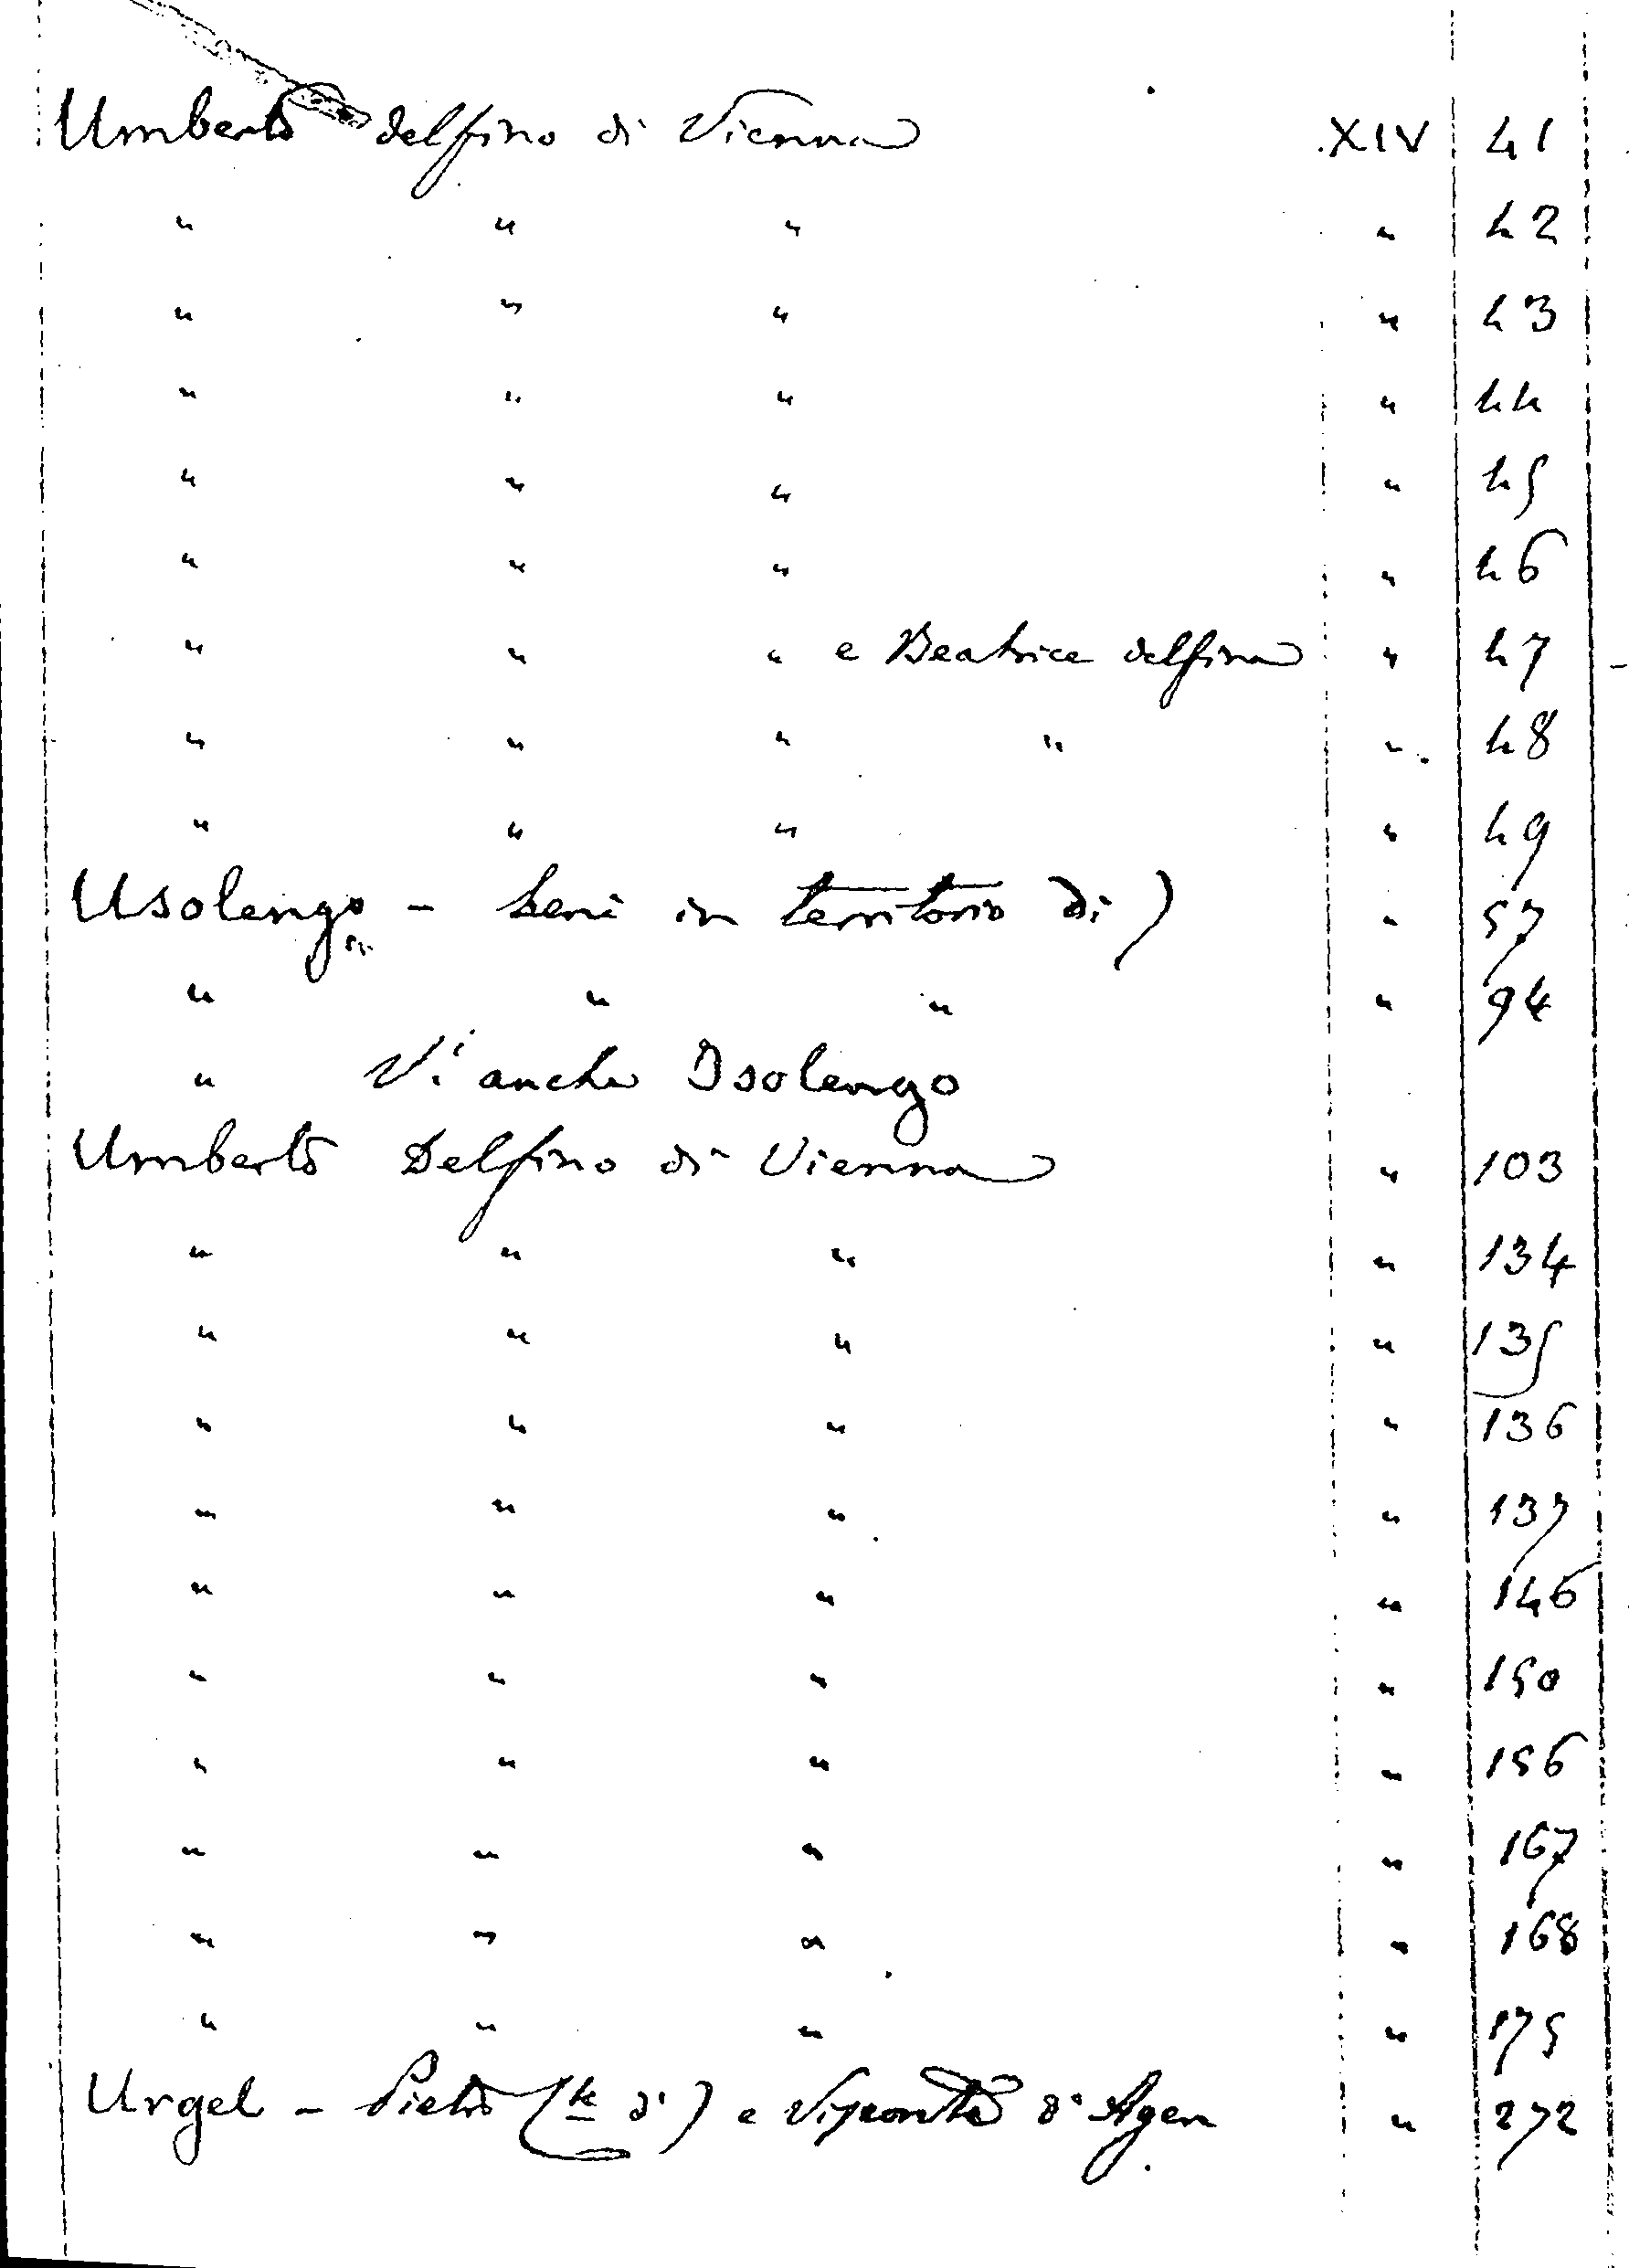 Umberto delfino di Vienna XIV 41
" " " " 42
" " " " 43
" " " " 44
" " " " 45
" " " " 46
" " " e Beatrice delfina " 47
" " " " " 48
" " " " 49
Usolengo - beni in territorio di) " 57
" " " " 94
" Vi anche Isolengo
Umberto Delfino di Vienna " 103
" " " " 134
" " " " 135
" " " " 136
" " " " 137
" " " " 146
" " " " 150
" " " " 156
" " " " 167
" " " " 168
" " " " 175
Urgel - Pietro (te di) e Visconte d'Agen " 272